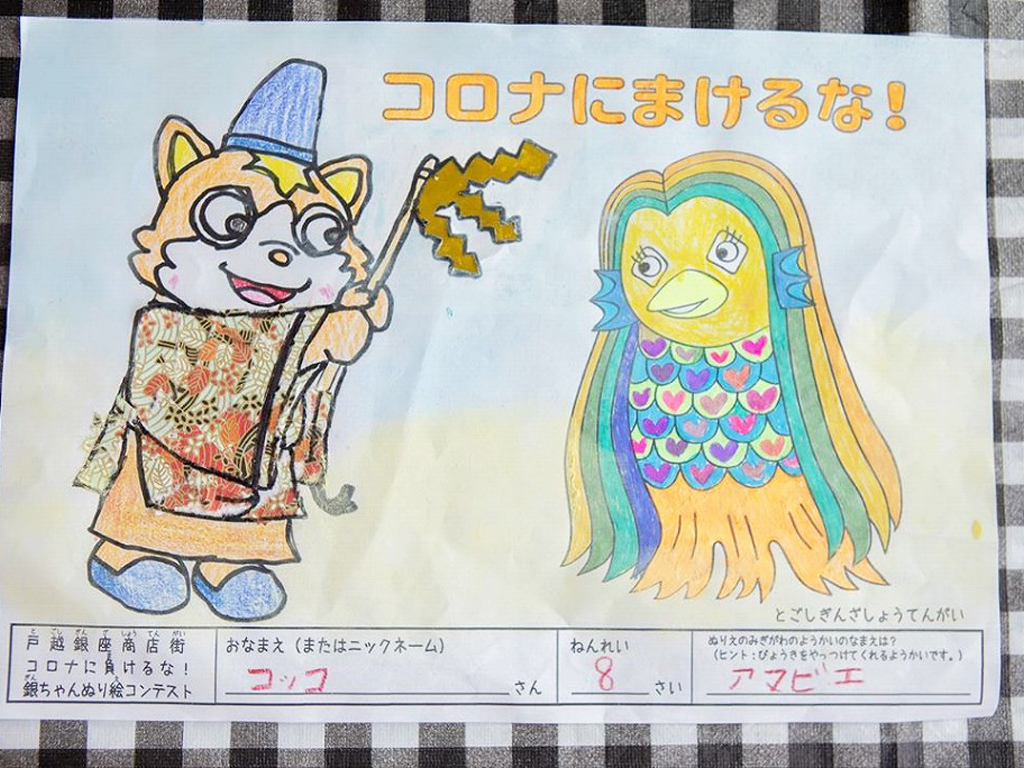 コロナにまけるな!
とごしぎんざしょうてんがい
戸越銀座商店街
コロナに負けるな!
銀ちゃんぬり絵コンテスト
おなまえ(またはニックネーム)
コッコ さん
ねんれい
8 さい
ぬりえのみぎがわのようかいのなまえは?
(ヒント:びょうきをやっつけてくれるようかいです。)
アマビエ